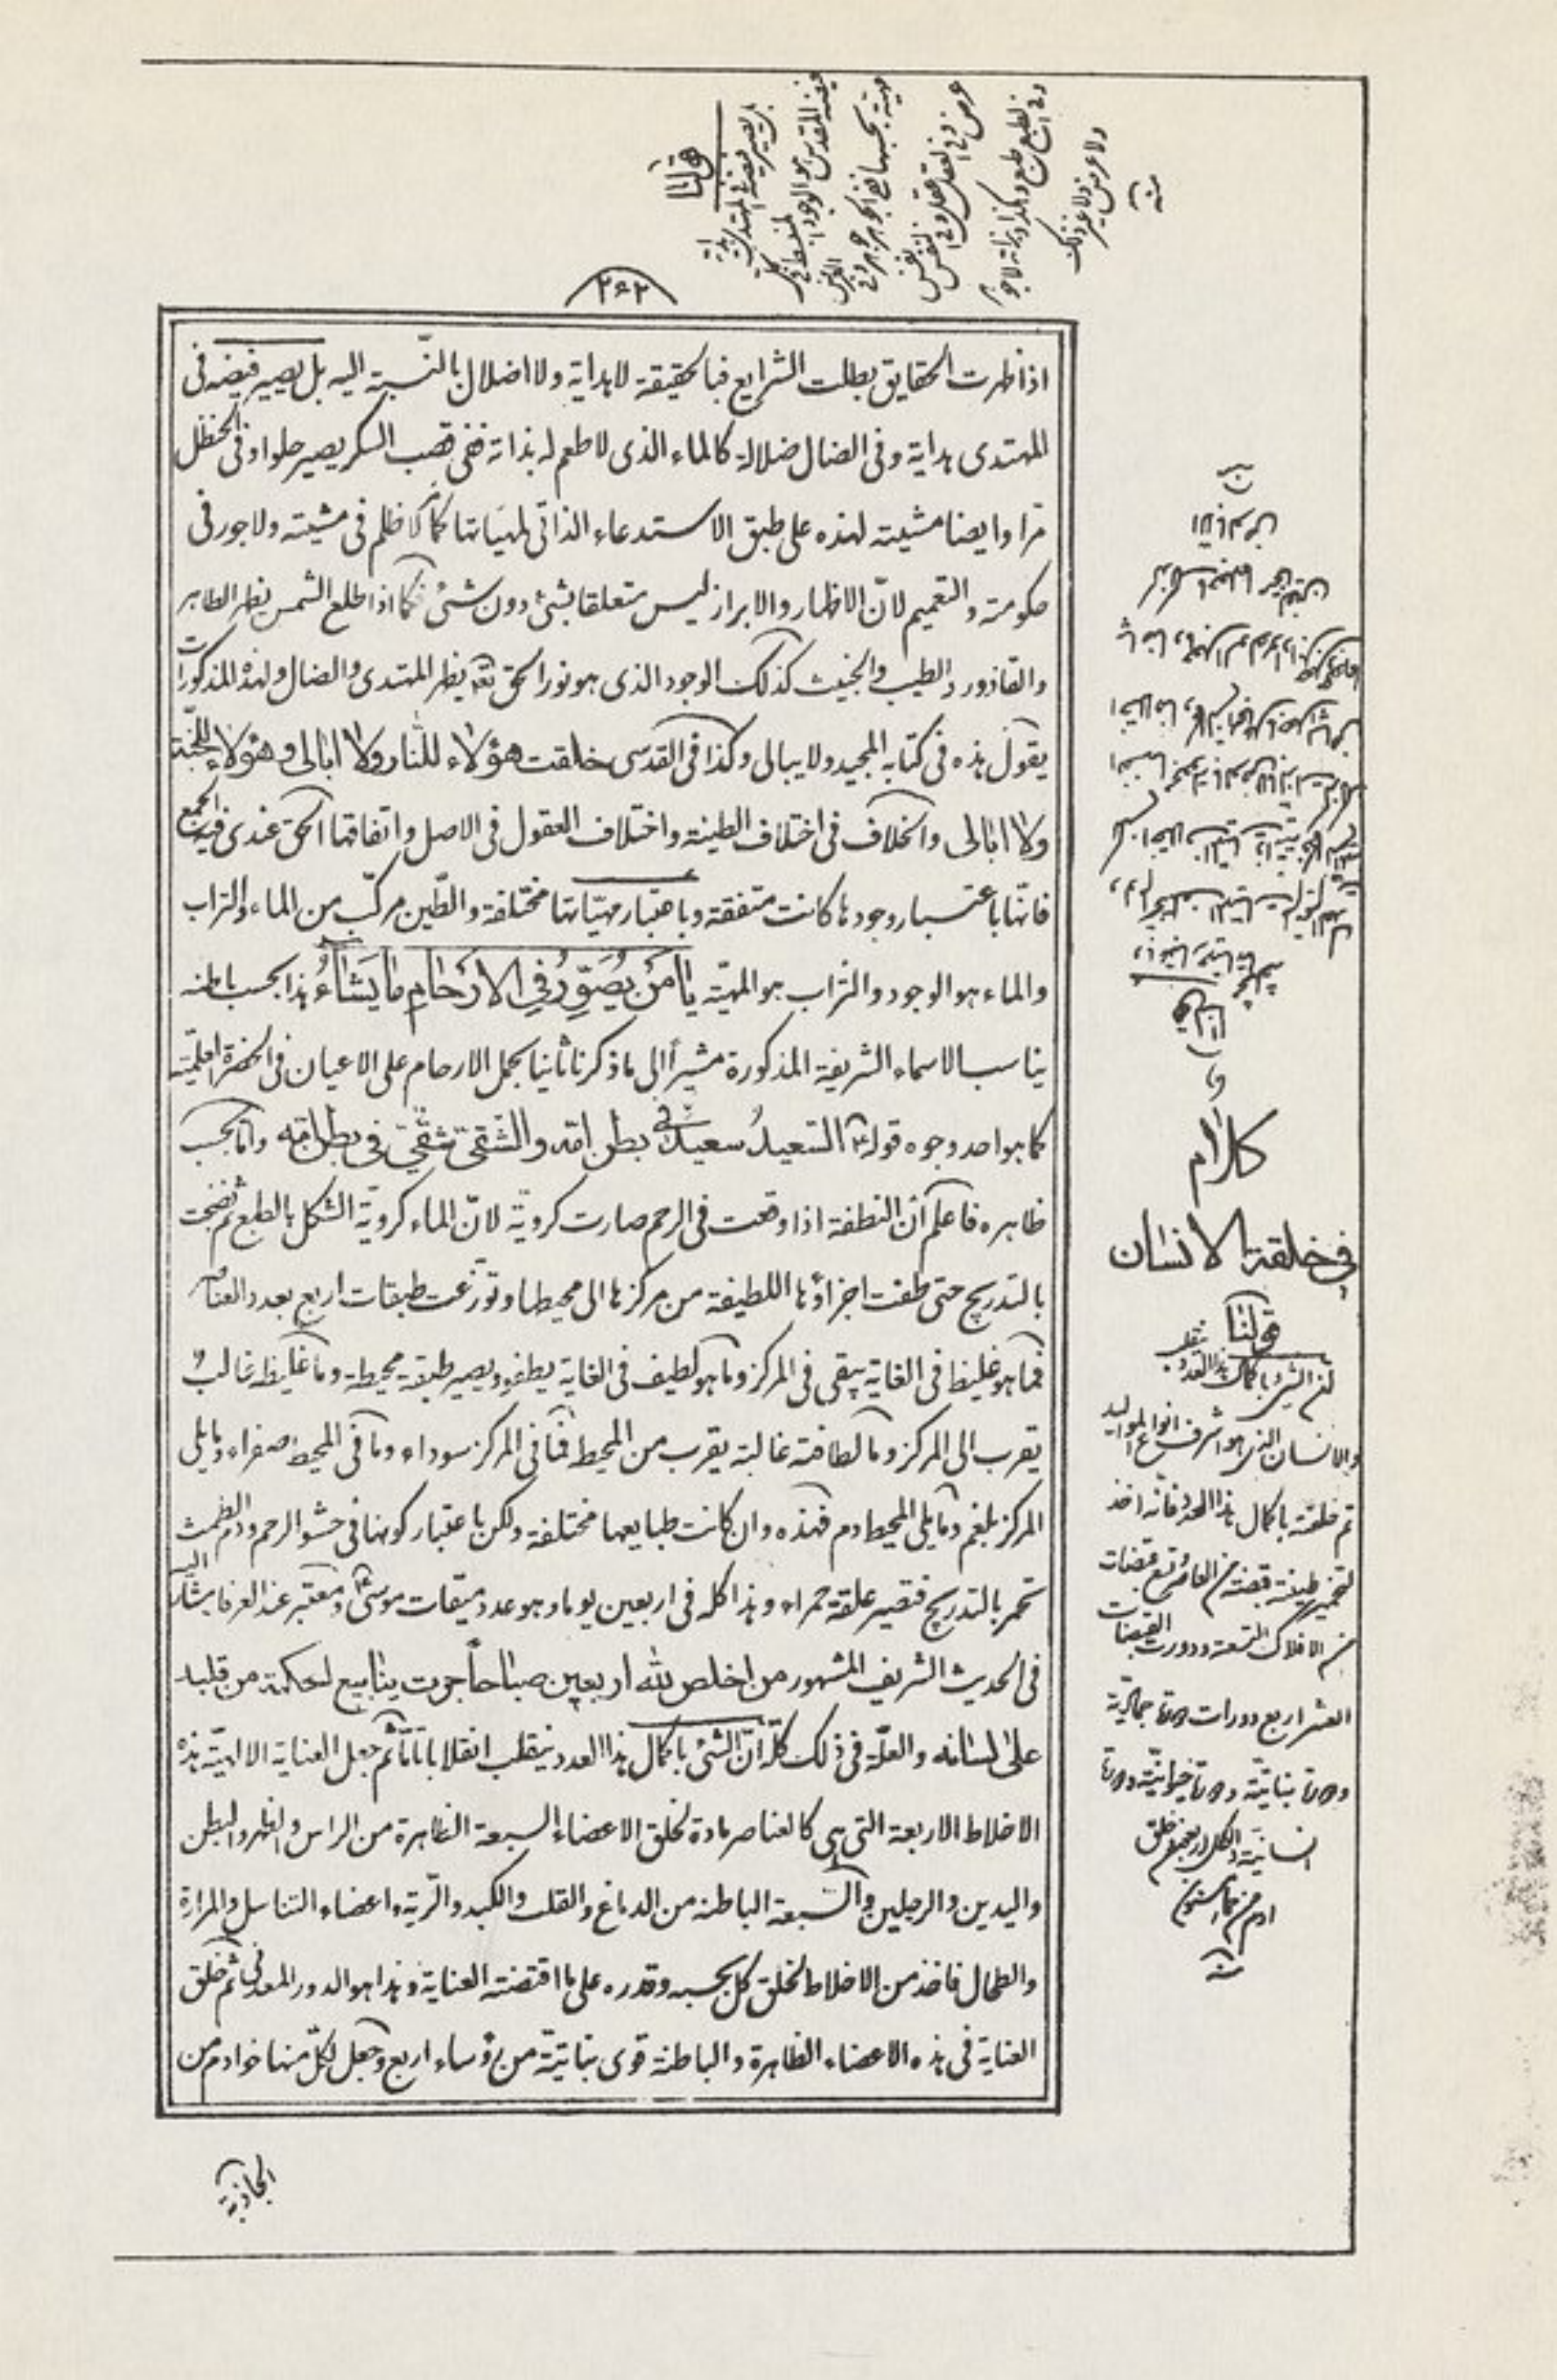 ٢٩٢
اذا ظهرت الحقايق بطلت الشرايع فبالحقيقة لا هداية ولا اضلال بالنّسبة اليه بل يصير فيضه فى
المهتدى هداية وفى الضال ضلالة كالماء الذى لا طعم له بذاته ففى قصب السكر يصير حلوا وفى الحنظل
مرّا وايضا مشيته لهذه على طبق الاستدعاء الذاتى لمهيّاتها كما مر لا ظلم فى مشيته ولا جور فى
حكومته والتعميم لانّ الاظهار والابراز ليس متعلقا بشئ دون شئ فكما اذا طلع الشمس يظهر الطاهر
والقاذور والطيب والخبيث كذلك الوجود الذى هو نور الحق تعه يظهر المهتدى والضال ولهذه المذكورات
يقول هذه فى كتابه المجيد ولا يبالى وكذا فى القدسى خلقت هؤلاء للنار ولا ابالى وهؤلاء للجنّة
ولا ابالى والخلاف فى اختلاف الطينة واختلاف العقول فى الاصل واتفاقها الحق عندى فيه الجمع
فانّها باعتبار وجودها كانت متفقة وباعتبار مهيّاتها مختلفة والطّين مركّب من الماء والتراب
والماء هو الوجود والتراب هو المهيّة يا مَنْ يُصَوِّرُ فِي الارْحَامِ مَا يَشَاءُ هذا بحسب باطنه
يناسب الاسماء الشريفة المذكورة مشيراً الى ما ذكرنا ثانيا بحمل الارحام على الاعيان فى الحضرة العلميّة
كما هو احد وجوه قوله ص السّعيدُ سعيدٌ فى بطن امّه والشّقىّ شقىّ فى بطن امّه وامّا بحسب
ظاهره فاعلم أنّ النطفة اذا وقعت فى الرحم صارت كرويّة لانّ الماء كرويّة الشكل بالطبع ثم نضجت
بالتدريج حتى طفت اجزاؤها اللطيفة من مركزها الى محيطها وتوزّعت طبقات اربع بعدد العناصر
فما هو غليظ فى الغاية يبقى فى المركز وما هو لطيف فى الغاية يطفو ويصير طبقة محيطة وما غليظه غالبٌ
يقرب الى المركز وما لطافته غالبة يقرب من المحيط فما فى المركز سوداء وما فى المحيط صفراء وما يلى
المركز بلغم وما يلى المحيط دم فهذه وان كانت طبايعها مختلفة ولكن باعتبار كونها فى حشو الرحم ودم الطمث
تحمر بالتدريج فتصير علقة حمراء وهذا كله فى اربعين يوما وهو عدد ميقات موسى ع ومعتبر عند العرفا يشار اليه
فى الحديث الشريف المشهور من اخلص لله اربعين صباحاً جرت ينابيع الحكمة من قلبه
على لسانه والعلّة فى ذلك كلّه انّ الشئ باكمال هذا العدد ينقلب انقلابا تامّا ثم جعل العناية الالهيّة هذه
الاخلاط الاربعة التى هى كالعناصر مادة لخلق الاعضاء السبعة الظاهرة من الراس والظهر والبطن
واليدين والرجلين والسّبعة الباطنة من الدماغ والقلب والكبد والرّية واعضاء التناسل والمرارة
والطحال فاخذ من الاخلاط لخلق كل بحسبه وقدره على ما اقتضته العناية وهذا هو الدور المعدنى ثم خلق
العناية فى هذه الاعضاء الظاهرة والباطنة قوى نباتيّة من رؤساء اربع وجعل لكلّ منها خوادم من
الجاذبة
كلام
فى خلقة الانسان
قولنا
انّ الشئ باكمال هذا العدد ينقلب
والانسان الذى هو اشرف انواع المواليد
تم خلقته باكمال هذا العدد فانّه اخذ
لتخمير طينته قبضة من العناصر وتسع قبضات
من الافلاك التسعة ودورت القبضات
العشر اربع دورات دورة جماديّة
ودورة نباتيّة ودورة حيوانيّة ودورة
انسانيّة والكل اربعون فخلق
ادم من حماء مسنون
منه
قولنا
بل يصير فيضه فى المهتدى هداية
منه